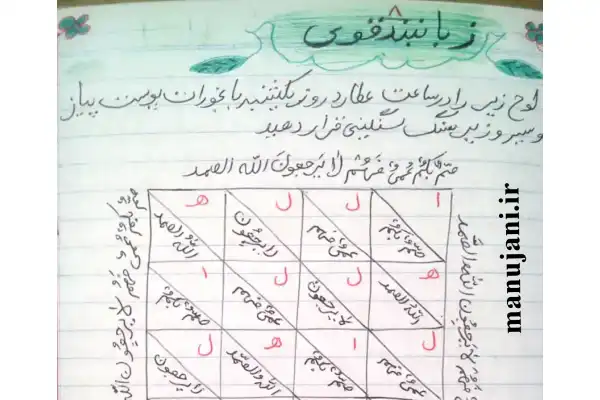 زبانبند قوی
لوح زیر را در ساعت عطارد روز یکشنبه با بخورات پوست پیاز
و سیر و زیر سنگ سنگینی قرار دهید
صُمٌّ بُکمٌ عُمیٌ فَهُم لا یَرجعونَ الله الصمد
ا ل ل ه
صم بکم عمی فهم لا یرجعون الله الصمد
ه ل ل ا
الله الصمد لا یرجعون عمی فهم صم بکم
ل ا ه ل
عمی فهم صم بکم الله الصمد لا یرجعون
فهم لا یرجعون الله الصمد
عمی فهم لا یرجعون الله
manujani.ir